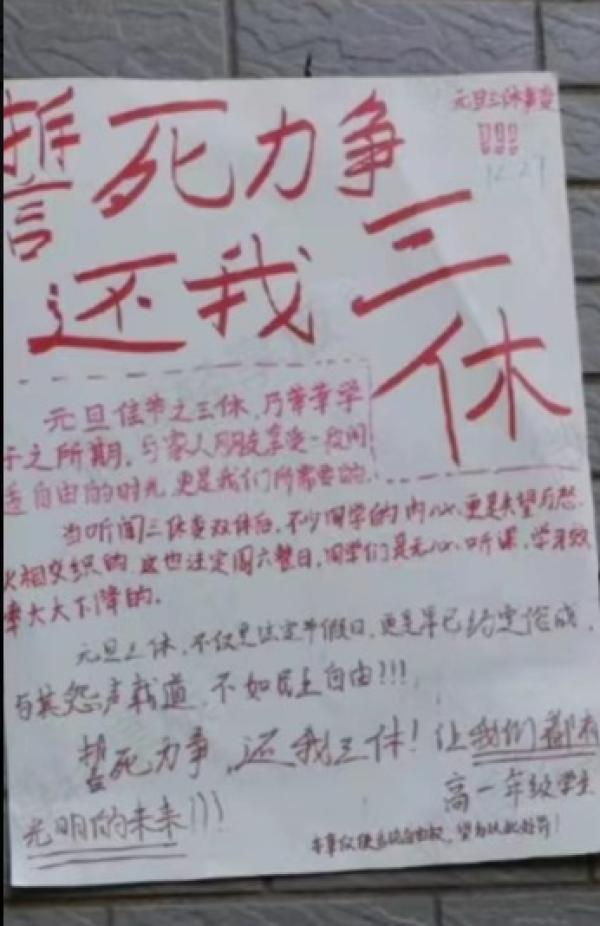 元旦三休事变
!!!
12.27
誓死力争
还我三休
元旦佳节之三休,乃莘莘学
子之所期,与家人朋友享受一段闲
适自由的时光,更是我们所需要的.
当听闻三休变双休后,不少同学的内心更是失望与怒
火相交织的.这也注定周六整日,同学们是无心听课,学习效
率大大下降的.
元旦三休,不仅是法定节假日,更是早已约定俗成,
与其怨声载道,不如民主自由!!!
誓死力争,还我三休!让我们都有
光明的未来!!!
高一年级学生
本事仅使言论自由权,望勿以此处罚!